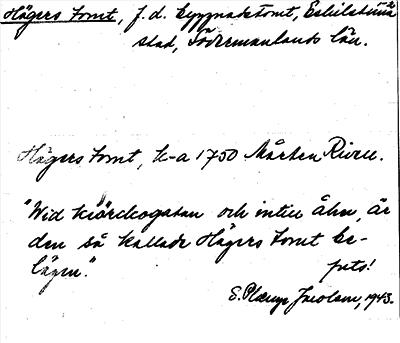 Högers Tomt, f.d. byggnadstomt, Eskilstuna
stad, Södermanlands län.
Högers Tomt, k-a 1750 Mårten Riven.
"Wid kiörckogatan och intill åhn, är
den så kallade Högers Tomt be-
lägen."
prts!
E. Plænge Jacobson, 1943.